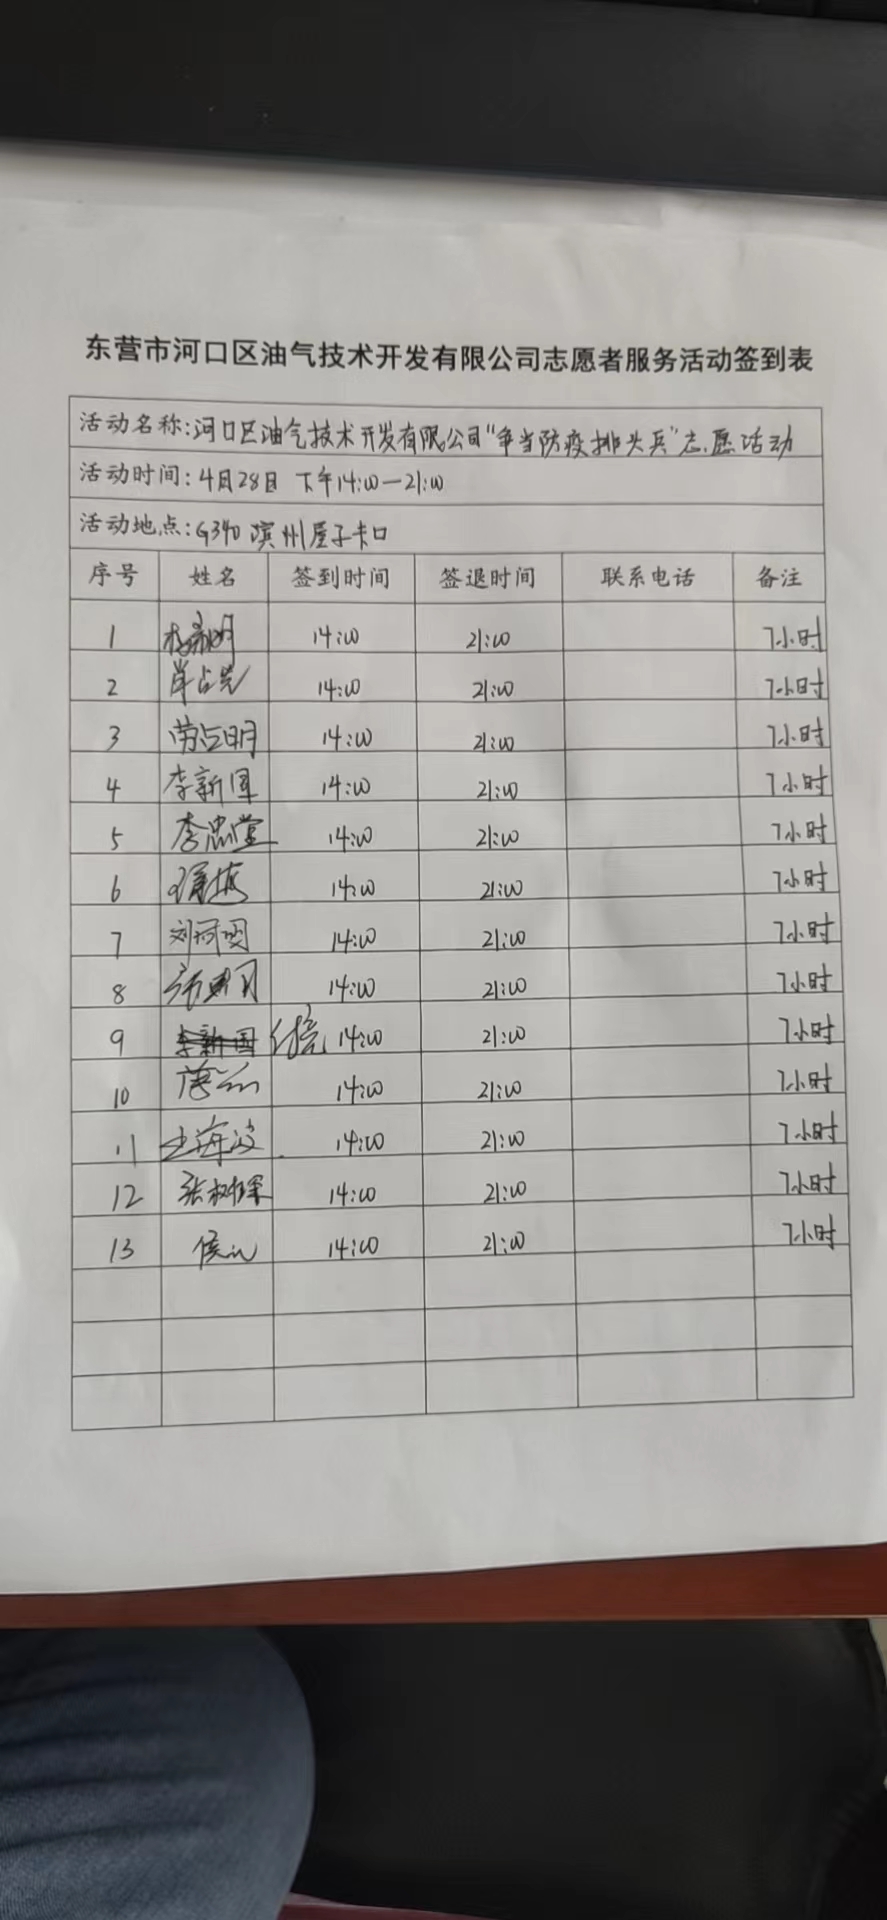 东营市河口区油气技术开发有限公司志愿者服务活动签到表
活动名称:河口区油气技术开发有限公司“争当防疫排头兵”志愿活动
活动时间:4月28日 下午14:00—21:00
活动地点:G340滨州屋子卡口
序号 姓名 签到时间 签退时间 联系电话 备注
1 14:00 21:00 7小时
2 肖占岩 14:00 21:00 7小时
3 劳占明 14:00 21:00 7小时
4 李新军 14:00 21:00 7小时
5 李忠堂 14:00 21:00 7小时
6 14:00 21:00 7小时
7 刘河明 14:00 21:00 7小时
8 14:00 21:00 7小时
9 14:00 21:00 7小时
10 14:00 21:00 7小时
11 王海波 14:00 21:00 7小时
12 张树彬 14:00 21:00 7小时
13 14:00 21:00 7小时